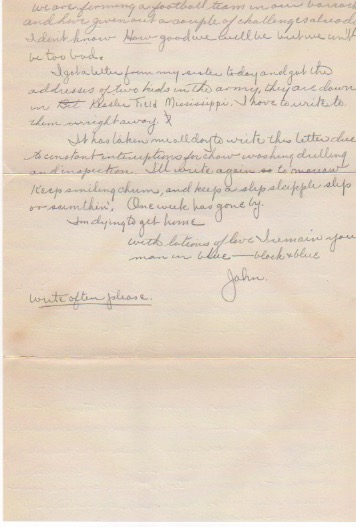 we are forming a football team in our barrack
and have given out a couple of challenges already
I dont know How good we will be but we wont
be too bad.
I got a letter from my sister today and got the
addresses of two kids in the army, they are down
in Kesler Field Mississippi. I have to write to
them right away.
It has taken me all day to write this letter due
to constant interuptions for chow washing drilling
and inspection. Ill write again so to morrow
Keep smiling chum, and keep a slip slapple slip
or sumthin'. One week has gone by.
Im dying to get home
with lotions of love I remain your
man in blue — black & blue
John.
write often please.